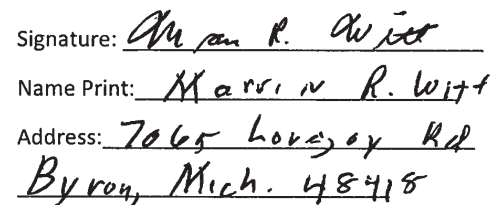 Signature: Marvin R. Witt
Name Print: Marvin R. Witt
Address: 7065 Lovejoy Rd
Byron, Mich. 48418